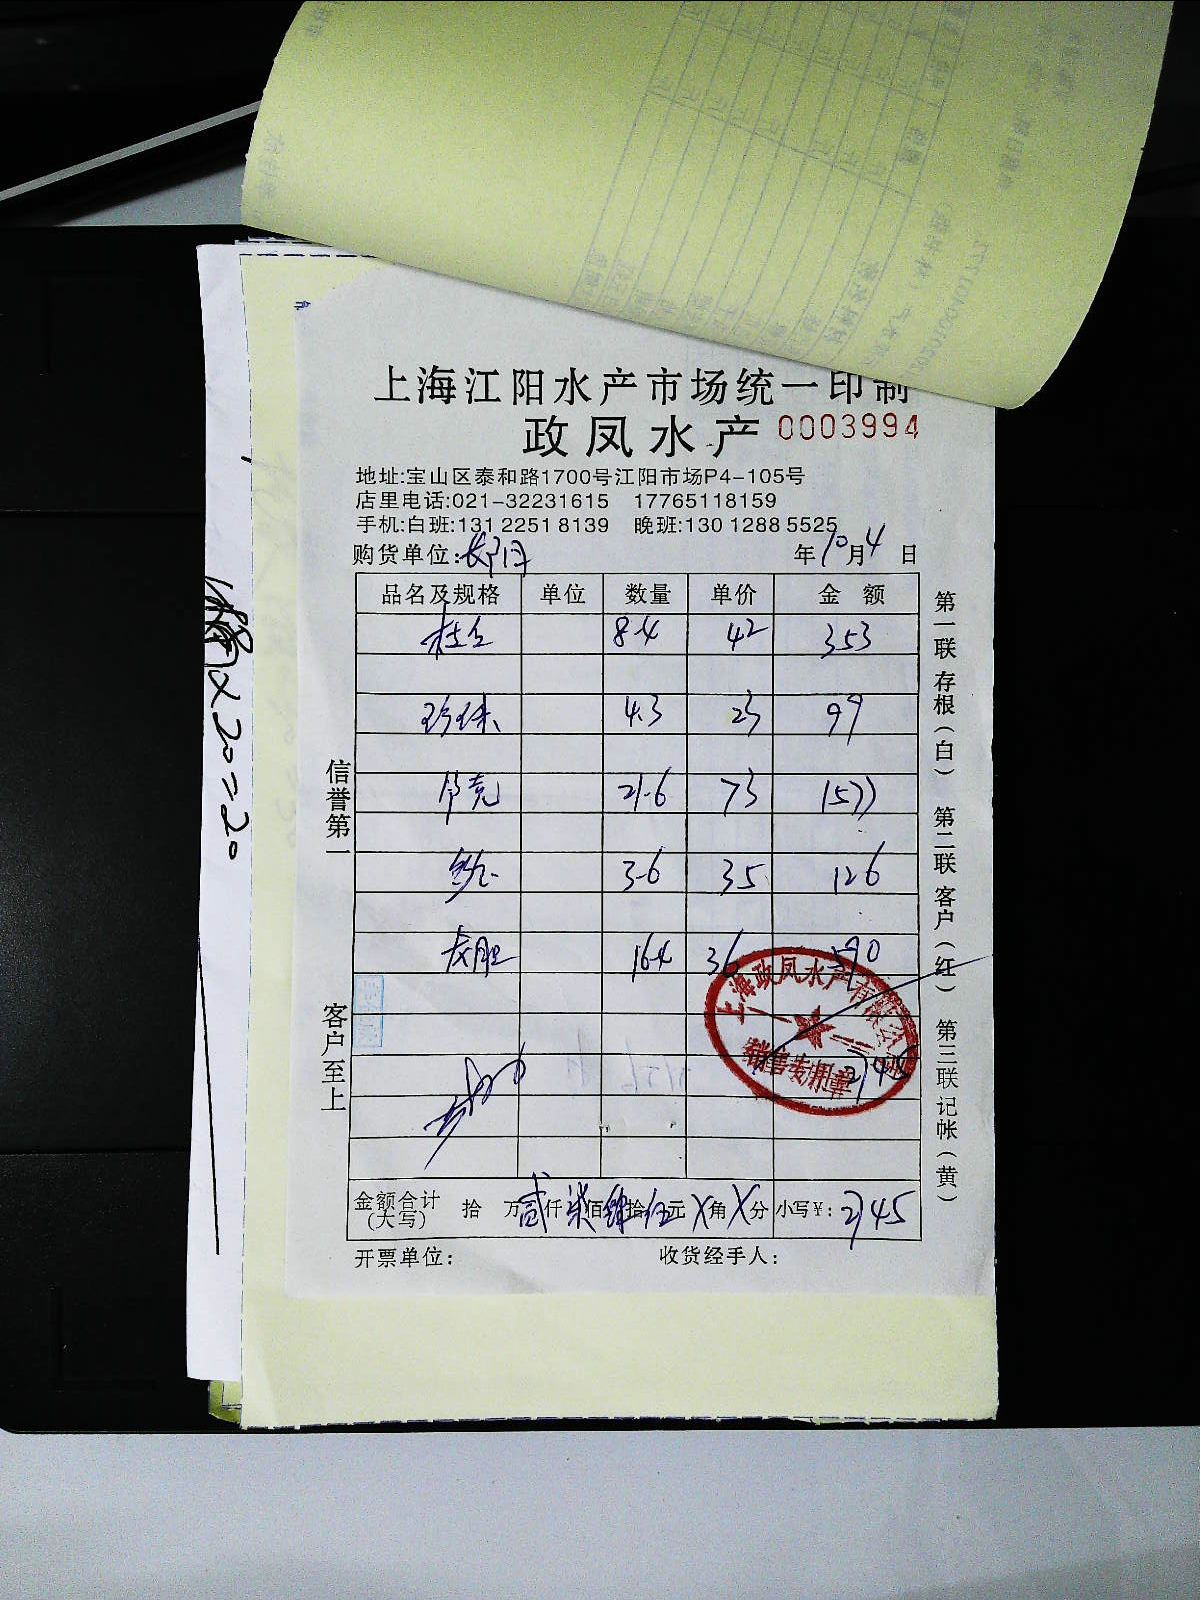 上海江阳水产市场统一印制
政凤水产 0003994
地址:宝山区泰和路1700号江阳市场P4-105号
店里电话:021-32231615 17765118159
手机:白班:131 2251 8139 晚班:130 1288 5525
购货单位: 年10月4日
品名及规格 单位 数量 单价 金额
8.4 42 353
珍珠 4.3 23 99
21.6 73 1577
3.6 35 126
龙胆 16.4 36 590
2745
金额合计(大写) 拾 万贰仟柒佰肆拾伍元X角X分 小写¥: 2745
开票单位: 收货经手人:
信誉第一
客户至上
第一联 存根(白) 第二联 客户(红) 第三联 记帐(黄)
上海政凤水产有限公司
销售专用章
x20=20